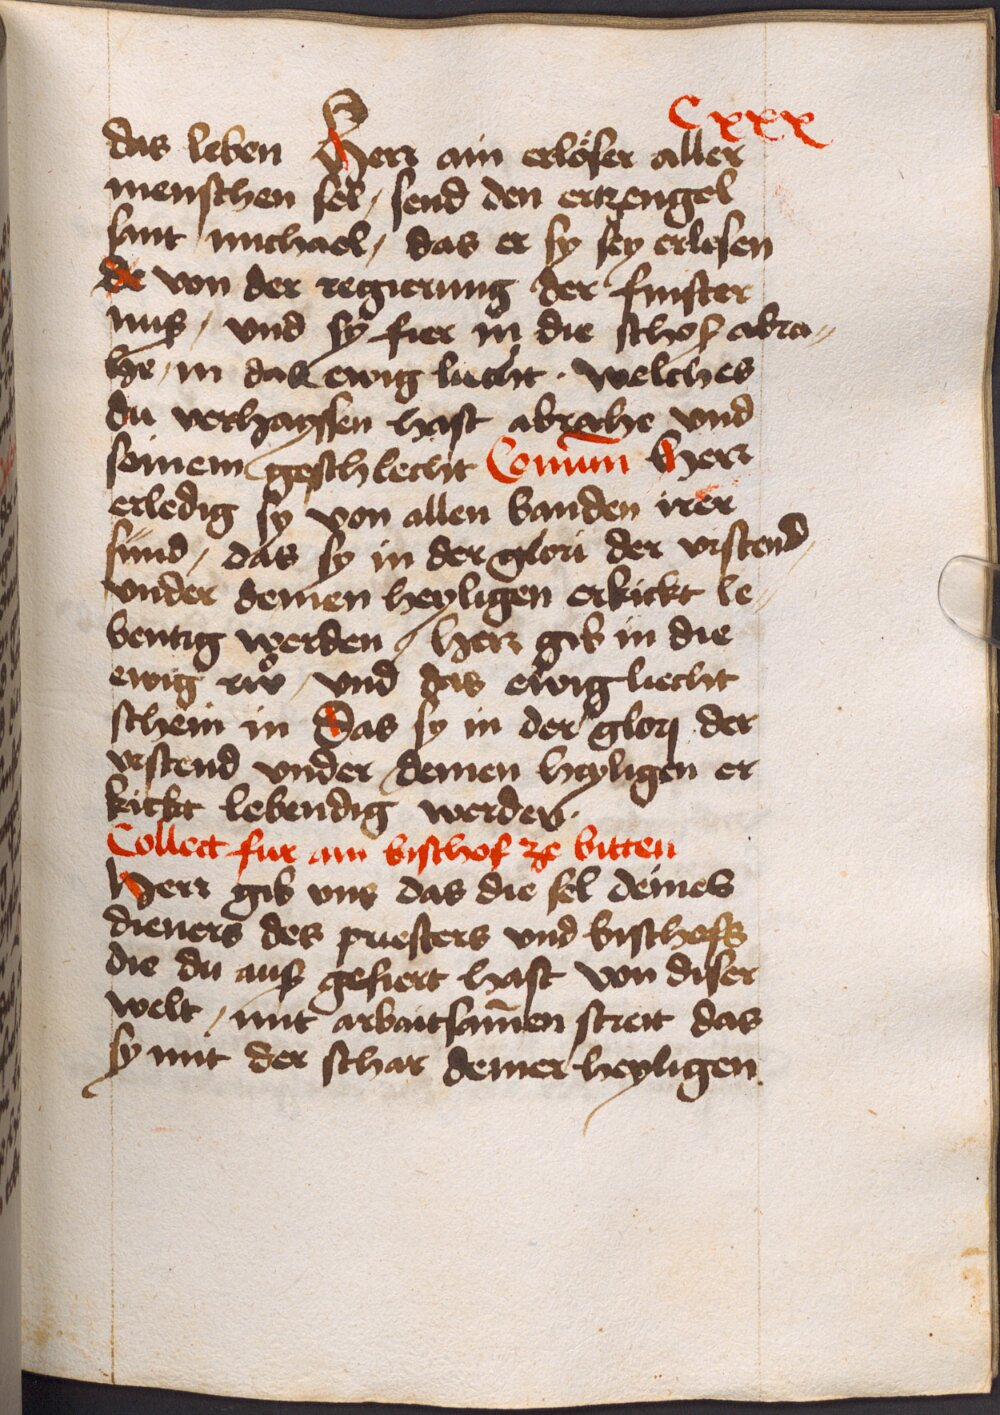 Cxxx
das leben Herr ain erlöser aller
menschen sel / send den ertzengel
sant michael / das er sy sey erlesen
de von der regierung der finster
nuß / und sy fier in die schoß abra=
he / in das ewig liecht . welches
du verhayssen hast abrahe und
seinem geschlecht Comūm herr
erledig sy von allen banden irer
sünd / das sy in der glori der urstend
under deinen heyligen erkickt le=
bentig werden / herr gib in die
ewig rův / und das ewig liecht
schein in Das sy in der glorj der
urstend under deinen heyligen er
kickt lebendig werden .
Collect fur ain bischof ze bitten
Herr gib uns das die sel deines
dieners des priesters und bischofs
die du auß gefiert hast von diser
welt / mit arbaitsam̄en streit das
sy mit der schar deiner heyligen